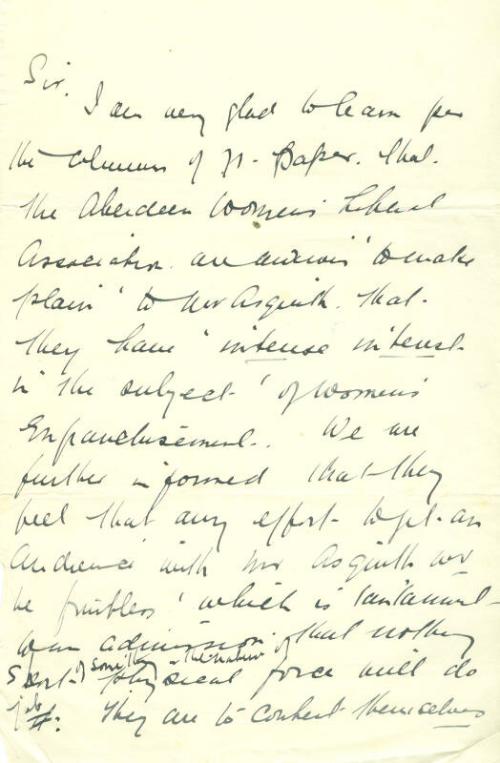 Sir.
I am very glad to learn per
the columns of yr. Paper. that.
the Aberdeen Womens Liberal
Association. are anxious "to make
plain" to Mr Asquith. that.
they have "intense interest.
in the subject" of Womens
Enfranchisement. We are
further informed that they
feel that any effort to get an
Audience with Mr Asquith wd
be fruitless' which is tantamount
to an admission. that nothing
short of something in the nature of physical force will do
They are to content themselves